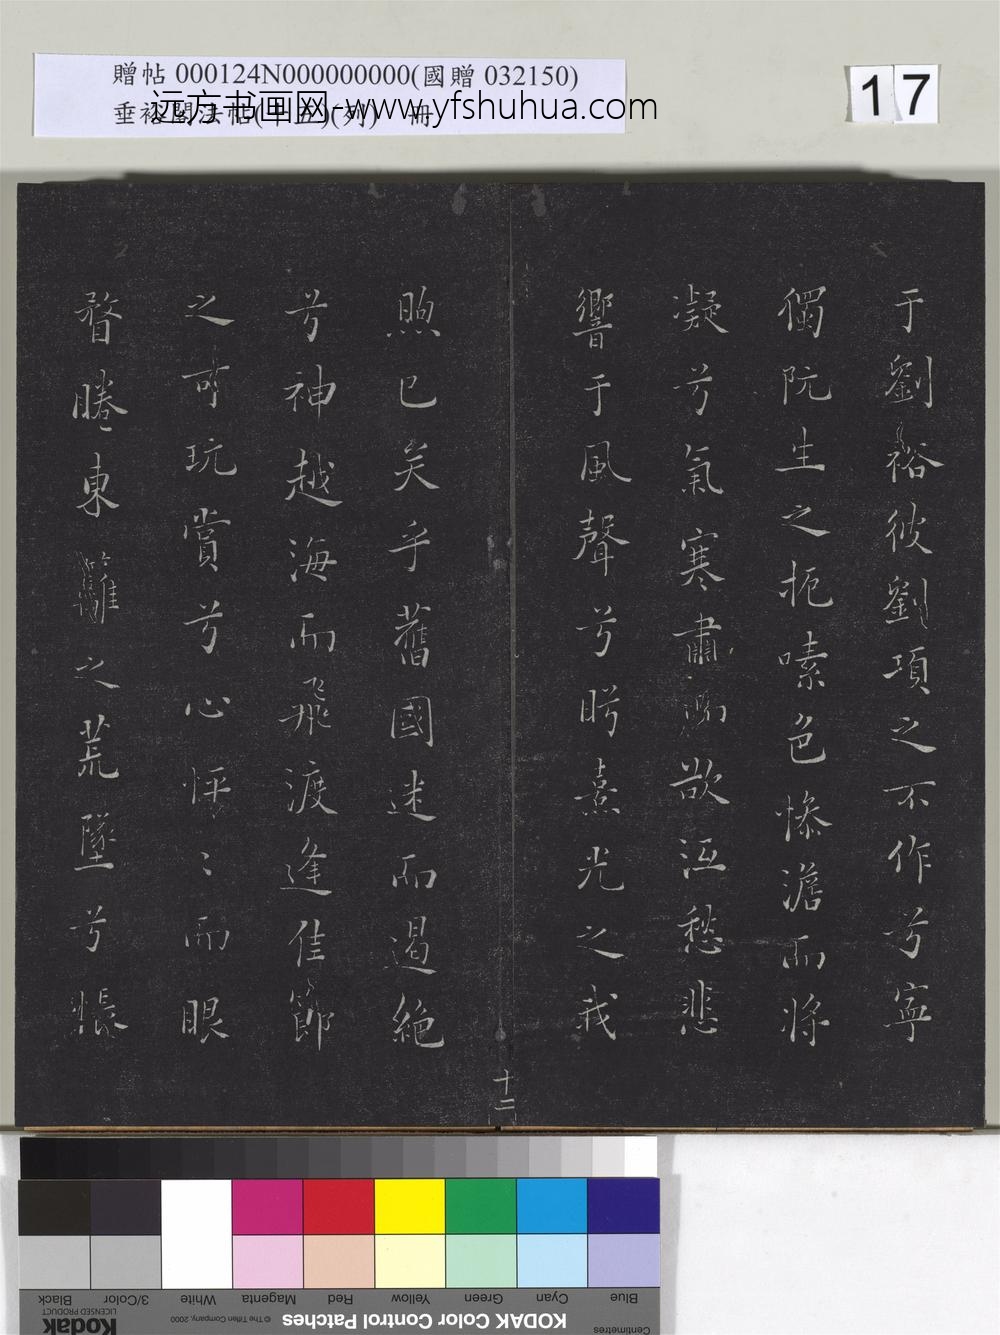 贈帖 000124N000000000(國贈 032150)
垂裕閣法帖(十五)(列) 冊
远方书画网-www.yfshuhua.com
17
于劉裕彼劉項之不作兮寧
獨阮生之扼嗉色慘澹而將
凝兮氣寒肅而欲沍愁悲
響于風聲兮眄熹光之我
煦已矣乎舊國迷而遏絕
兮神越海而飛渡逢佳節
之可玩賞兮心怦〻而眼
瞀睠東籬之荒墜兮悵
十二
Blue Cyan Green Yellow Red Magenta White 3/Color Black
Centimetres
KODAK Color Control Patches
© The Tiffen Company, 2000
Kodak
LICENSED PRODUCT